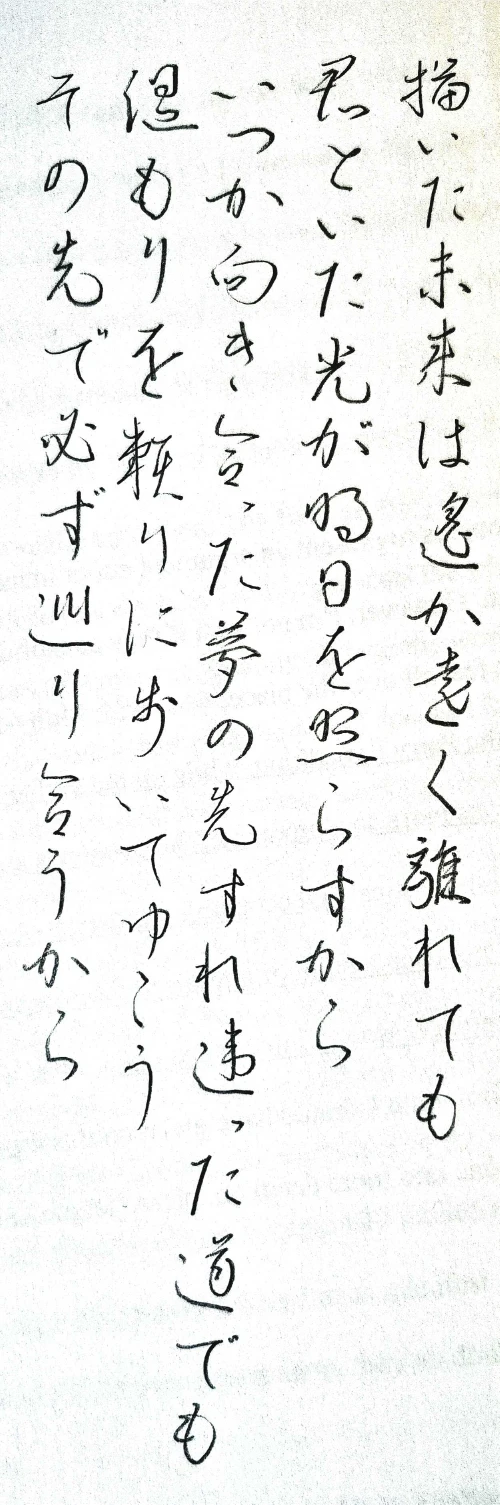 描いた未来は遙か遠く離れても
君といた光が明日を照らすから
いつか向き合った夢の先すれ違った道でも
温もりを頼りに歩いてゆこう
その先で必ず巡り合うから